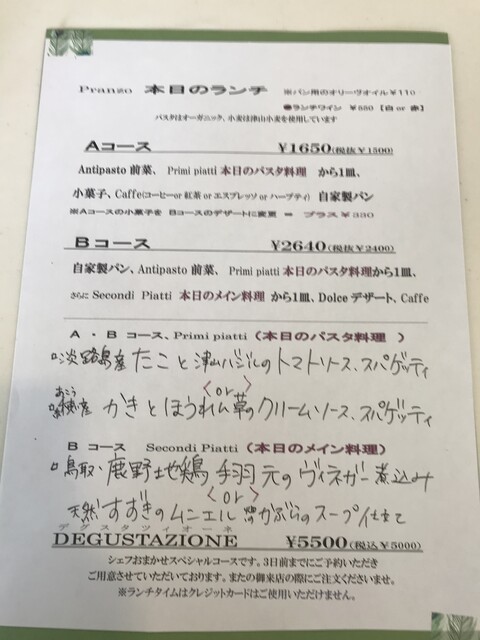 Pranzo 本日のランチ ※パン用のオリーヴオイル￥110
●ランチワイン ￥550 【白or 赤】
パスタはオーガニック、小麦は津山小麦を使用しています
Aコース ￥1650(税抜￥1500)
Antipasto 前菜、 Primi piatti 本日のパスタ料理 から1皿、
小菓子、Caffe(コーヒーor 紅茶 or エスプレッソ or ハーブティ) 自家製パン
※Aコースの小菓子を Bコースのデザートに変更 ＝ プラス￥330
Bコース ￥2640(税抜￥2400)
自家製パン、Antipasto 前菜、 Primi piatti 本日のパスタ料理から1皿、
さらに Secondi Piatti 本日のメイン料理 から1皿、Dolce デザート、Caffe
A ・ B コース、Primi piatti（本日のパスタ料理 ）
淡路島産 たこと津山バジルのトマトソース、スパゲッティ
<or>
おこう
産 かきとほうれん草のクリームソース、スパゲッティ
B コース Secondi Piatti（本日のメイン料理）
鳥取、鹿野地鶏 手羽元のヴィネガー煮込み
<or>
天然すずきのムニエル かぶらのスープ仕立て
デグスタツィオーネ
DEGUSTAZIONE ￥5500(税込￥5000)
シェフおまかせスペシャルコースです。3日前までにご予約いただき
ご用意させていただいております。またの御来店の際にご注文くださいませ。
※ランチタイムはクレジットカードはご使用いただけません。